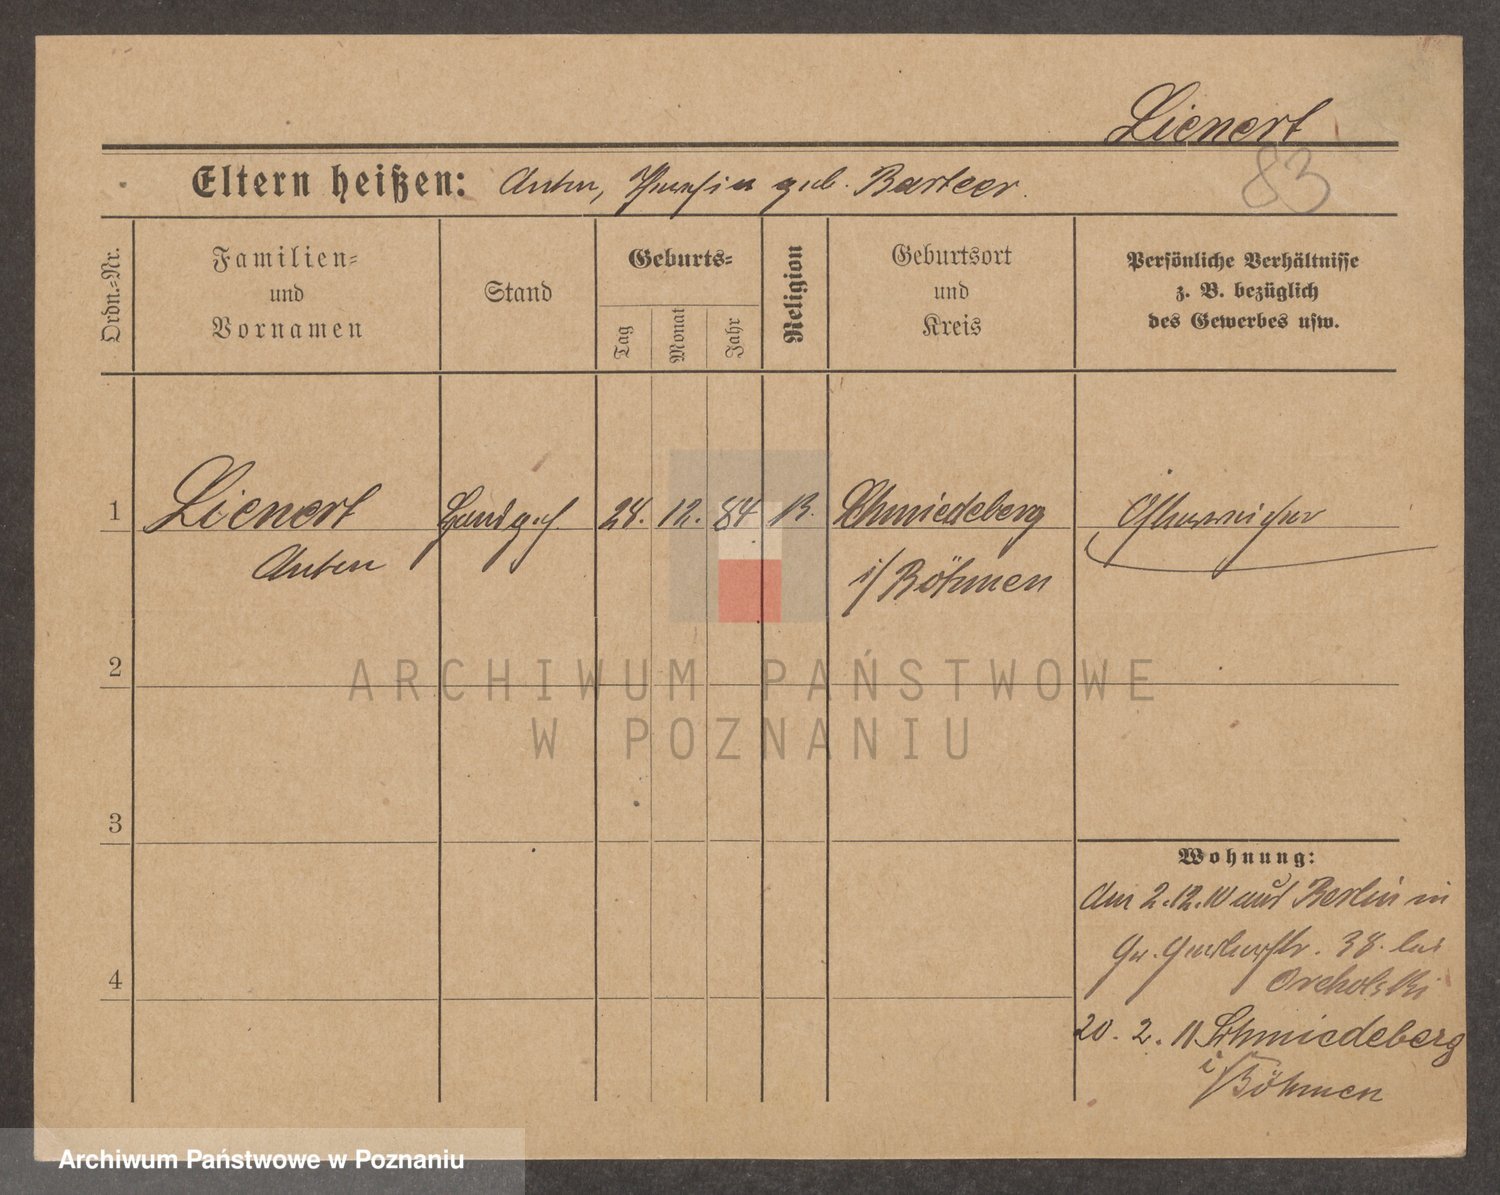 Lienert
83
Eltern heißen: Anton, geb.
Ordn.-Nr.
Familien- und Vornamen
Stand
Geburts-
Tag
Monat
Jahr
Religion
Geburtsort und Kreis
Persönliche Verhältnisse
z. B. bezüglich
des Gewerbes usw.
1
Lienert
Anton
12. 84
Schmiedeberg
i/Böhmen
2
3
4
ARCHIWUM PAŃSTWOWE
W POZNANIU
Wohnung:
Am 2.12.10 aus Berlin in
Orcholski
20. 2. 11 Schmiedeberg
i/Böhmen
Archiwum Państwowe w Poznaniu